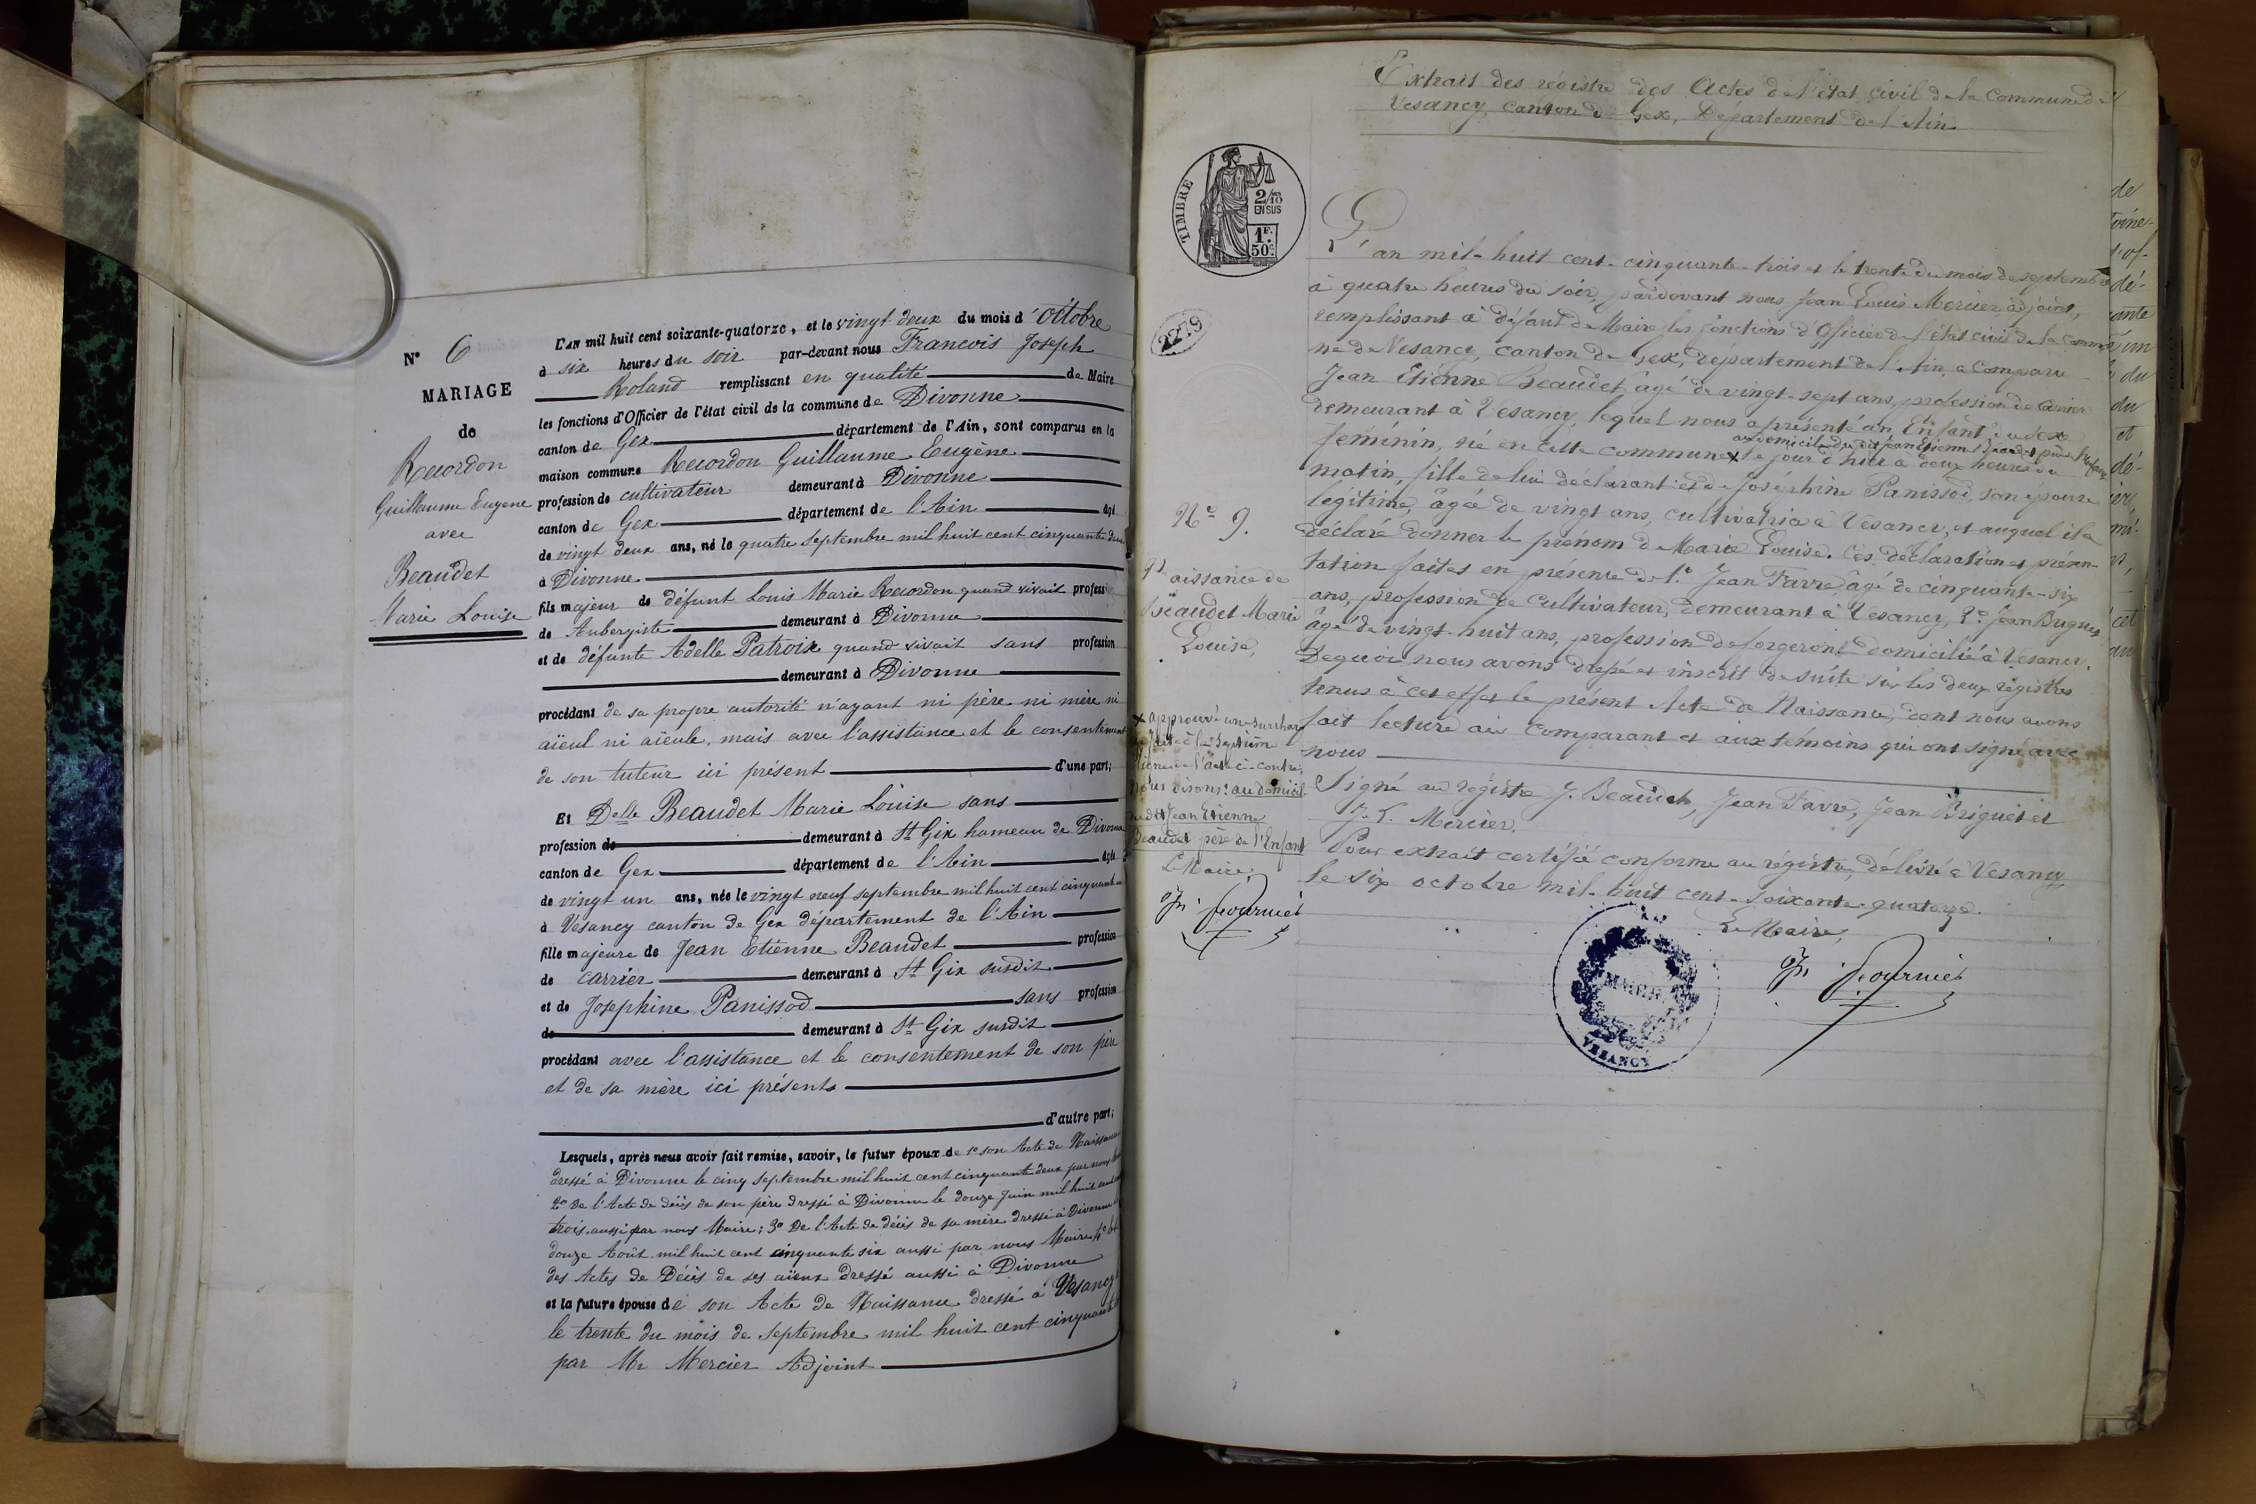 N° 6
MARIAGE
de
Recordon
Guillaume Eugene
avec
Beaudet
Marie Louise
L'AN mil huit cent soixante-quatorze, et le vingt deux du mois d'octobre
à six heures du soir par-devant nous Francois Joseph
Roland remplissant en qualité de Maire
les fonctions d'Officier de l'état civil de la commune de Divonne
canton de Gex département de l'Ain, sont comparus en la
maison commune Recordon Guillaume Eugène
profession de cultivateur demeurant à Divonne
canton de Gex département de l'Ain âgé
de vingt deux ans, né le quatre septembre mil huit cent cinquante deux
à Divonne
fils majeur de défunt Louis Marie Recordon quand vivait profession
de Aubergiste demeurant à Divonne
et de défunte Adelle Patroix quand vivait sans profession
demeurant à Divonne
procédant de sa propre autorité n'ayant ni père ni mère ni
aïeul ni aïeule, mais avec l'assistance et le consentement
de son tuteur ici présent d'une part;
Et Delle Beaudet Marie Louise sans
profession de demeurant à St Gix hameau de Divonne
canton de Gex département de l'Ain âgée
de vingt un ans, née le vingt neuf septembre mil huit cent cinquante
à Vesancy canton de Gex département de l'Ain
fille majeure de Jean Etienne Beaudet profession
de carrier demeurant à St Gix susdit
et de Josephine Panissod sans profession
de demeurant à St Gix susdit
procédant avec l'assistance et le consentement de son père
et de sa mère ici présents
d'autre part;
Lesquels, après nous avoir fait remise, savoir, le futur époux de 1° son Acte de Naissance
dressé à Divonne le cinq septembre mil huit cent cinquante deux par nous
2° De l'Acte de décès de son père dressé à Divonne le douze Juin mil huit cent
trois aussi par nous Maire; 3° De l'Acte de décès de sa mère dressé à Divonne
douze Août mil huit cent cinquante six aussi par nous Maire 4°
des Actes de Décès de ses aïeux dressé aussi à Divonne
et la future épouse de son Acte de Naissance dressé à Vesancy
le trente du mois de septembre mil huit cent cinquante
par Mr Mercier Adjoint
Extrait des régistre des Actes de l'état civil de la Commune de
Vesancy, canton de Gex, Département de l'Ain
TIMBRE
2/10 EN SUS
1F. 50c.
2279
L'an mil-huit cent-cinquante-trois et le trente du mois de septembre
à quatre heures du soir, pardevant nous Jean Louis Mercier adjoint,
remplissant à défaut de Maire les fonctions d'Officier de l'état civil de la commu-
ne de Vesancy, canton de Gex, département de l'Ain, a comparu
Jean Etienne Beaudet, âgé de vingt-sept ans, profession de carrier
demeurant à Vesancy, lequel nous a présenté un Enfant du sexe
au domicile du dit Jean Etienne Beaudet père de l'enfant
féminin, né en cette commune x le jour d'hier à deux heures du
matin, fille de lui déclarant et de Joséphine Panissod, son épouse
légitime, âgée de vingt ans, cultivatrice à Vesancy, et auquel il a
déclaré donner le prénom de Marie Louise. Ces déclaration et présen-
tation faites en présence de 1.° Jean Favre, âgé de cinquante-six
ans, profession de cultivateur, demeurant à Vesancy, 2.° Jean Briguet
âgé de vingt-huit ans, profession de forgeron, domicilié à Vesancy.
De quoi nous avons dressé et inscrit de suite sur les deux régistres
tenus à cet effet le présent Acte de Naissance, dont nous avons
fait lecture aux comparant et aux témoins qui ont signé avec
nous
Signé au régistre J. Beaudet, Jean Favre, Jean Briguet et
J. L. Mercier.
Pour extrait certifié conforme au régistre, délivré à Vesancy
le six octobre mil-huit cent-soixante-quatorze.
Le Maire,
Fournier
MAIRIE
VESANCY
N° 9.
Naissance de
Beaudet Marie
Louise.
x approuvé une surcharge
faite à la septième
ligne de l'acte ci-contre,
nous disons: au domicile
du dit Jean Etienne
Beaudet père de l'Enfant
Le Maire,
Fournier
de
dé-
un
du
du
et
dé-
mi-
cet
au